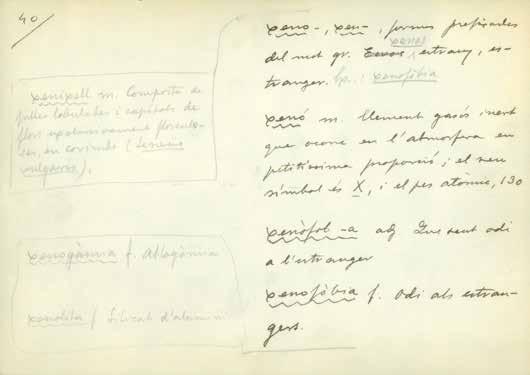 40
xenixell m. Composta de
fulles lobulades i capítols de
flors exclusivament flosculo-
ses, en corimbe (Senecio
vulgaris).
xenogàmia f. Al·logàmia
xenolita f Silicat d'alumini
xeno-, xen-, formes prefixades
del mot gr. xenos, estrany, es-
tranger. Ex.: xenofòbia
xenó m. Element gasós inert
que ocorre en l'atmosfera en
petitíssima proporció; el seu
símbol és X, i el pes atòmic, 130
xenòfob -a adj Que sent odi
a l'estranger
xenofòbia f. Odi als estran-
gers.